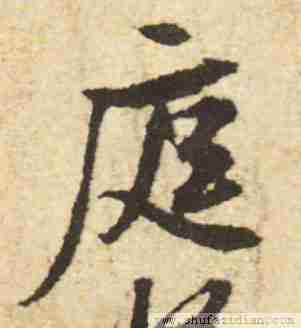 庭
www.shufazidian.com